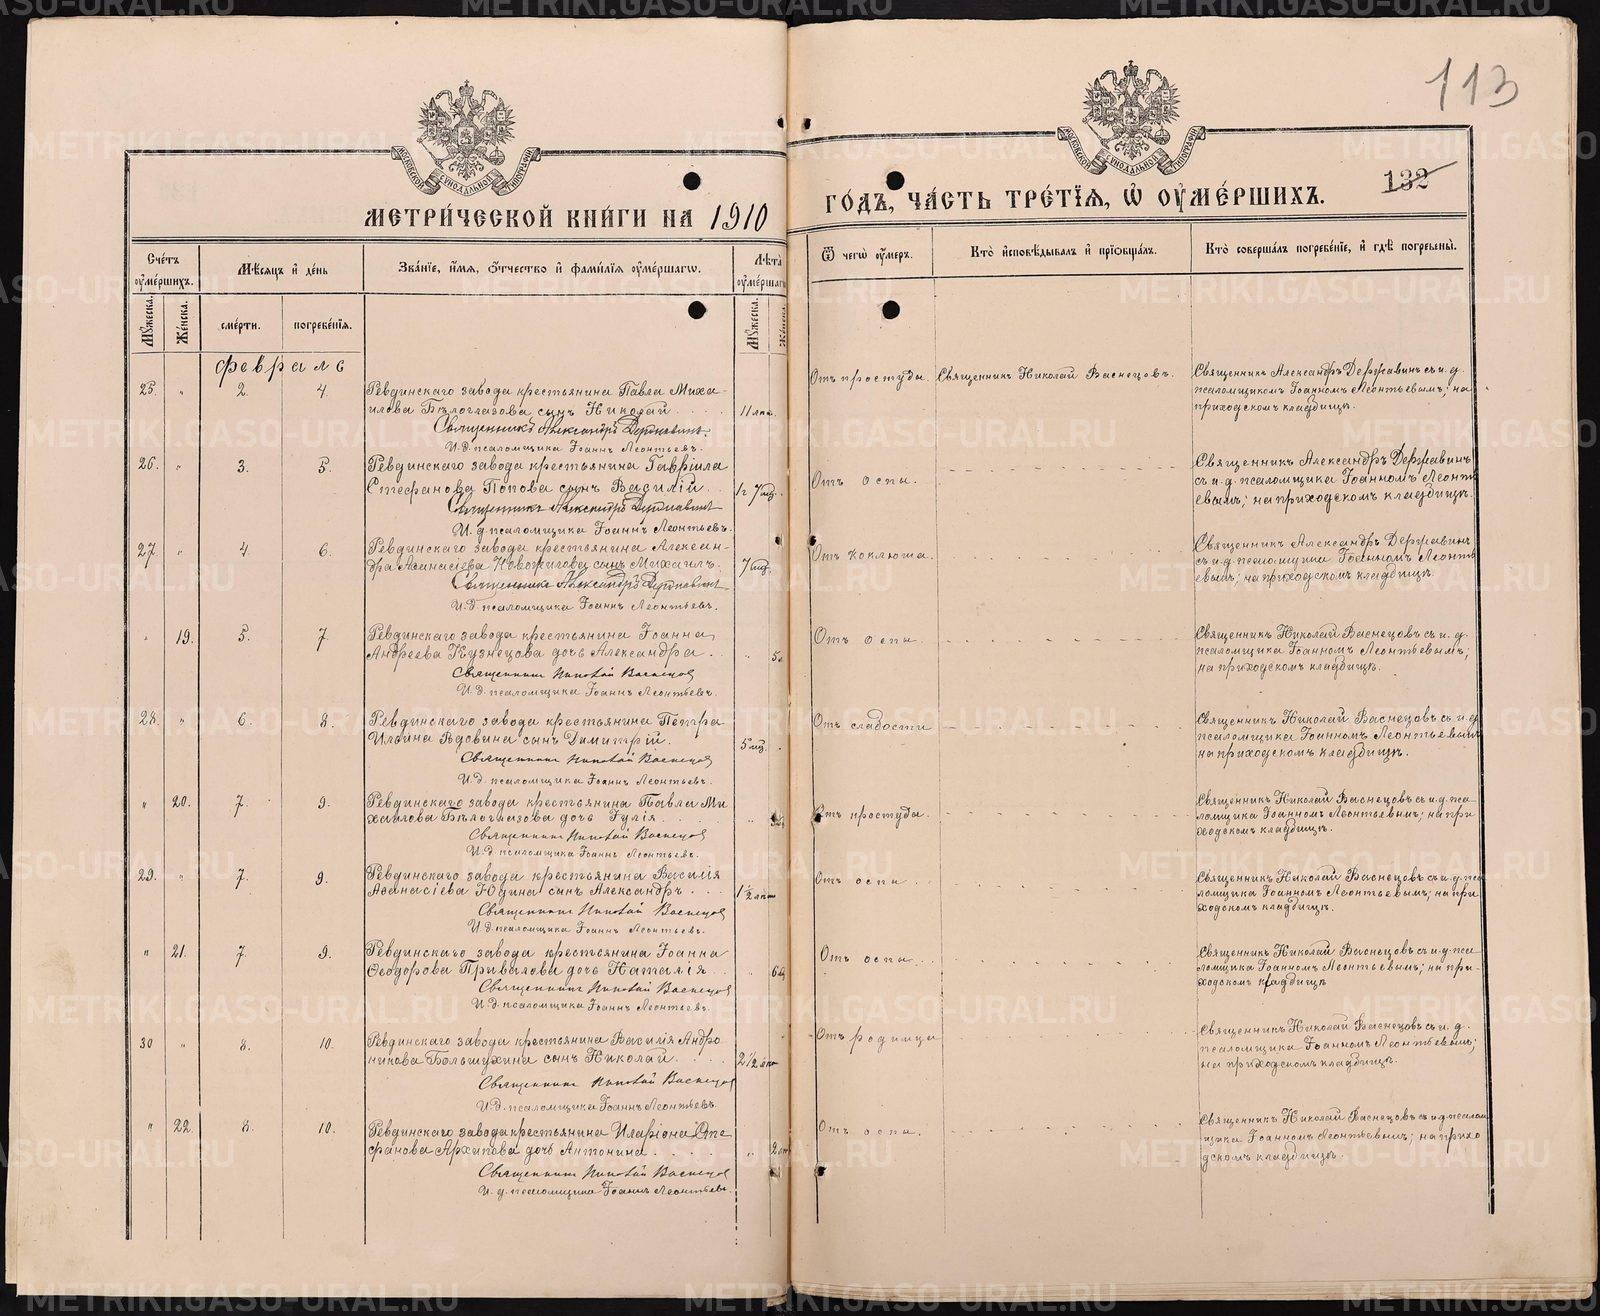 113
132
МЕТРИ́ЧЕСКОЙ КНИ́ГИ НА 1910
ГО́ДЪ, ЧА́СТЬ ТРЕ́ТІѦ, Ѡ ОУМЕ́РШИХЪ.
Сче́тъ оуме́ршихъ.
Мꙋ́жеска.
Же́нска.
Мѣ́сяцъ и де́нь
сме́рти.
погребе́нія.
Зва́ніе, и́мя, о́тчество и фами́лія оуме́ршагω.
Лѣ́та оуме́ршагω
Мꙋ́жеска.
Же́нска
Ѿ чегὼ оу́меръ.
Кто̀ и҆сповѣ́дывалъ и прїωбща́лъ.
Кто̀ соверша́лъ погребе́ніе, и гдѣ̀ погребены̀.
февраль
25. " 2. 4. Ревдинскаго завода крестьянина Павла Миха-
илова Бѣлоглазова сынъ Николай 11 лѣт.
Священникъ Александръ Державинъ.
И.д. псаломщика Іоаннъ Леонтьевъ.
Отъ простуды. Священникъ Николай Васнецовъ.
Священникъ Александръ Державинъ съ и.д.
псаломщикомъ Іоанномъ Леонтьевымъ; на
приходскомъ кладбищѣ.
26. " 3. 5. Ревдинскаго завода крестьянина Гавріила
Стефанова Попова сынъ Василій 1 г 7 мѣ.
Священникъ Александръ Державинъ
И.д. псаломщика Іоаннъ Леонтьевъ.
Отъ оспы.
Священникъ Александръ Державинъ
съ и.д. псаломщика Іоанномъ Леонть
евымъ; на приходскомъ кладбищѣ.
27. " 4. 6. Ревдинскаго завода крестьянина Алексан-
дра Аѳанасіева Новожилова сынъ Михаилъ. 7 мѣ.
Священникъ Александръ Державинъ
И.д. псаломщика Іоаннъ Леонтьевъ.
Отъ коклюша.
Священникъ Александръ Державинъ
съ и.д. псаломщика Іоанномъ Леонть
евымъ; на приходскомъ кладбищѣ.
" 19. 5. 7. Ревдинскаго завода крестьянина Іоанна
Андреева Кузнецова дочь Александра.
Священникъ Николай Васнецов
И.д. псаломщика Іоаннъ Леонтьевъ.
Отъ оспы.
Священникъ Николай Васнецовъ съ и.д.
псаломщика Іоанномъ Леонтьевымъ;
на приходскомъ кладбищѣ.
28. " 6. 8. Ревдинскаго завода крестьянина Петра
Ильина Вдовина сынъ Димитрій. 5 мѣ.
Священникъ Николай Васнецов
И.д. псаломщика Іоаннъ Леонтьевъ.
Отъ слабости
Священникъ Николай Васнецовъ съ и.д.
псаломщика Іоанномъ Леонтьевымъ
на приходскомъ кладбищѣ.
" 20. 7. 9. Ревдинскаго завода крестьянина Павла Ми
хаилова Бѣлоглазова дочь Іулія.
Священникъ Николай Васнецов
И.д. псаломщика Іоаннъ Леонтьевъ.
Отъ простуды.
Священникъ Николай Васнецовъ съ и.д. пса-
ломщика Іоанномъ Леонтьевымъ; на при
ходскомъ кладбищѣ.
29. " 7. 9. Ревдинскаго завода крестьянина Василія
Аѳанасіева Юдина сынъ Александръ. 1 1/2 лѣт
Священникъ Николай Васнецов
И.д. псаломщика Іоаннъ Леонтьевъ.
Отъ оспы
Священникъ Николай Васнецовъ съ и.д. пса
ломщика Іоанномъ Леонтьевымъ; на при
ходскомъ кладбищѣ.
" 21. 7. 9. Ревдинскаго завода крестьянина Іоанна
Ѳеодорова Привалова дочь Наталія
Священникъ Николай Васнецов
И.д. псаломщика Іоаннъ Леонтьевъ.
Отъ оспы.
Священникъ Николай Васнецовъ съ и.д. пса
ломщика Іоанномъ Леонтьевымъ; на при-
ходскомъ кладбищѣ
30 " 8. 10. Ревдинскаго завода крестьянина Василія Андро
никова Большухина сынъ Николай. 2 1/2 лѣт
Священникъ Николай Васнецов
И.д. псаломщика Іоаннъ Леонтьевъ.
Отъ родимца
Священникъ Николай Васнецовъ съ и.д.
псаломщика Іоанномъ Леонтьевымъ;
на приходскомъ кладбищѣ.
" 22. 8. 10. Ревдинскаго завода крестьянина Иларіона Сте
фанова Архипова дочь Антонина.
Священникъ Николай Васнецов
И.д. псаломщика Іоаннъ Леонтьевъ.
Отъ оспы.
Священникъ Николай Васнецовъ съ и.д. псалом
щика Іоанномъ Леонтьевымъ; на прихо
дскомъ кладбищѣ.
METRIKI.GASO-URAL.RU